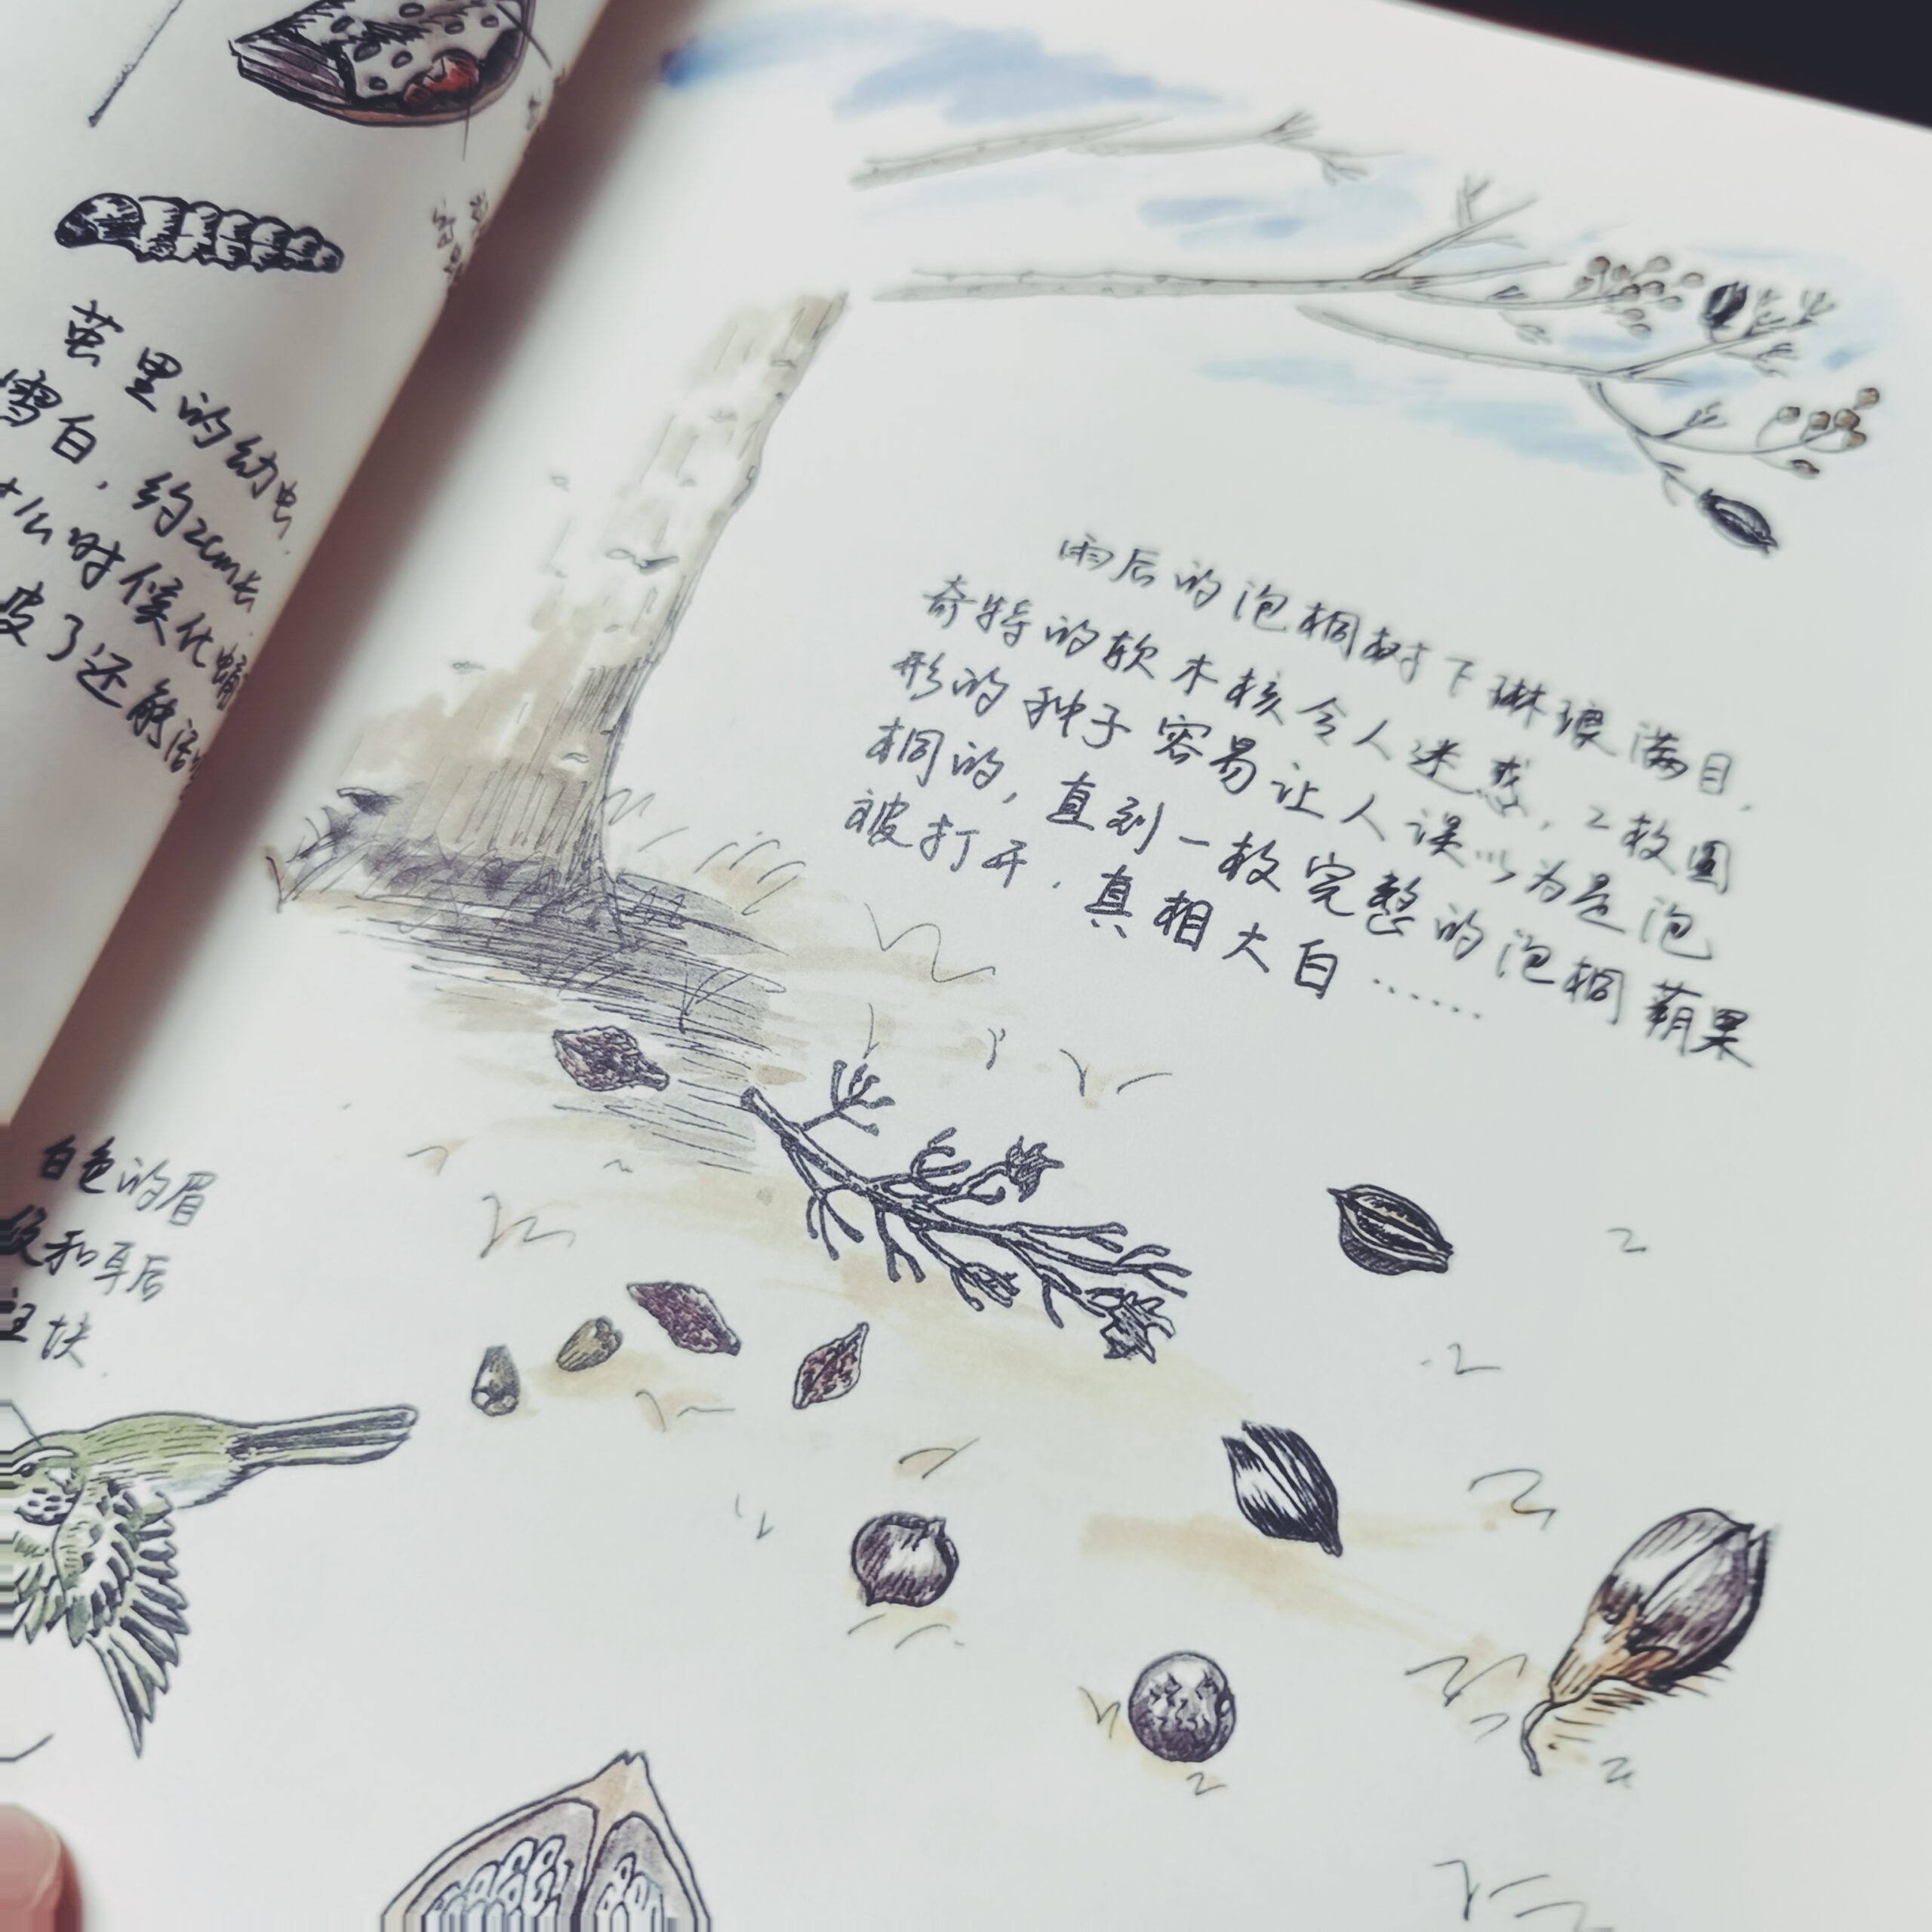 茧里的幼虫
雪白,约2cm长
什么时候化蛹
皮了还能活
白色的眉
纹和耳后
斑块.
雨后的泡桐树下琳琅满目,
奇特的软木核令人迷惑,2枚圆
形的种子容易让人误以为是泡
桐的,直到一枚完整的泡桐蒴果
被打开.真相大白……